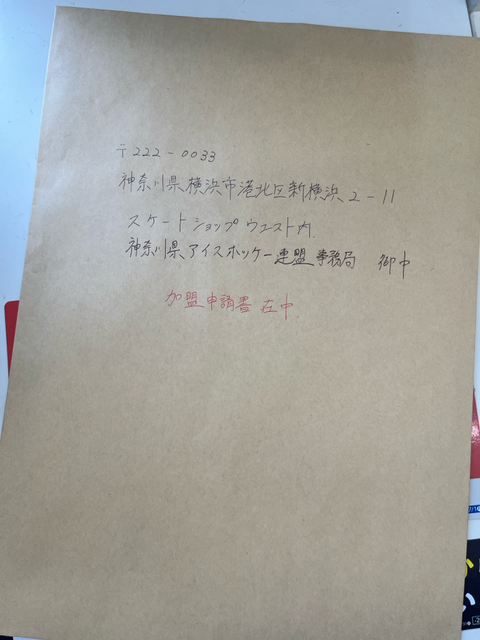 〒222-0033
神奈川県横浜市港北区新横浜2-11
スケートショップウエスト内
神奈川県アイスホッケー連盟事務局 御中
加盟申請書在中